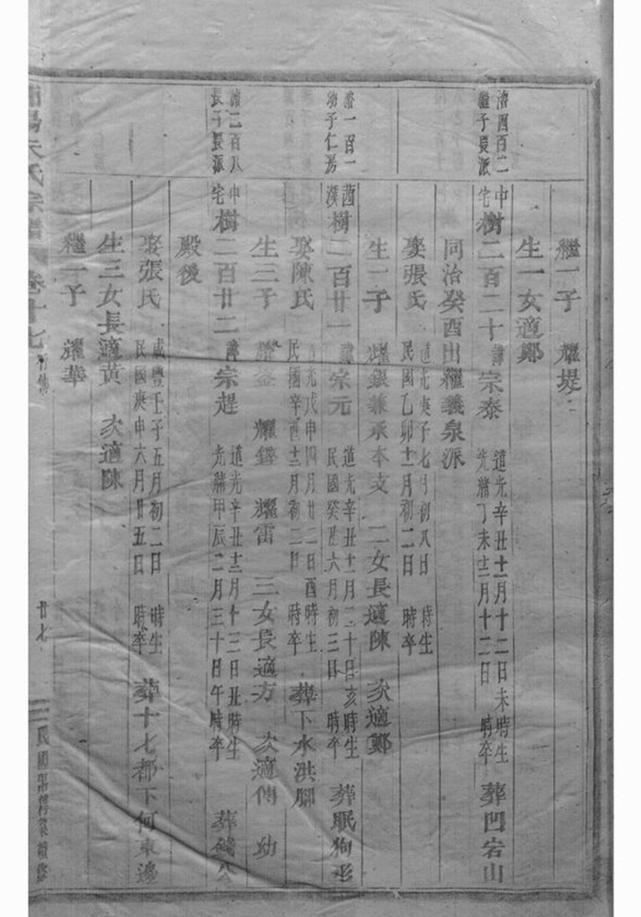 繼一子 耀堤
生一女適鄭
清四百二
繼子長派
中宅
樹二百二十 諱宗泰 道光辛丑十一月十二日未時生 光緒丁未十二月十二日 時卒 葬凹宕山
同治癸酉出繼義泉派
娶張氏 道光庚子七月初八日 時生 民國乙卯十一月初二日 時卒
生一子 耀銀兼承本支 二女長適陳 次適鄭
清一百一
幼子仁
樹二百廿一 諱宗元 道光辛丑十一月二十日亥時生 民國癸丑六月初三日 時卒 葬眠狗形
娶陳氏 道光戊申四月廿二日酉時生 民國辛酉十二月初二日 時卒 葬下水洪腳
生三子 耀鋒 耀雷 三女長適方 次適傅 幼
殿後
清二百八
長子長派
中宅
樹二百廿二 諱宗趕 道光辛丑十二月十三日丑時生 光緒甲辰二月三十日午時卒 葬
娶張氏 咸豐壬子五月初二日 時生 民國庚申六月廿五日 時卒 葬十七都下何東邊
生三女長適黃 次適陳
繼一子 耀華
氏宗譜 卷十七 廿七 民國